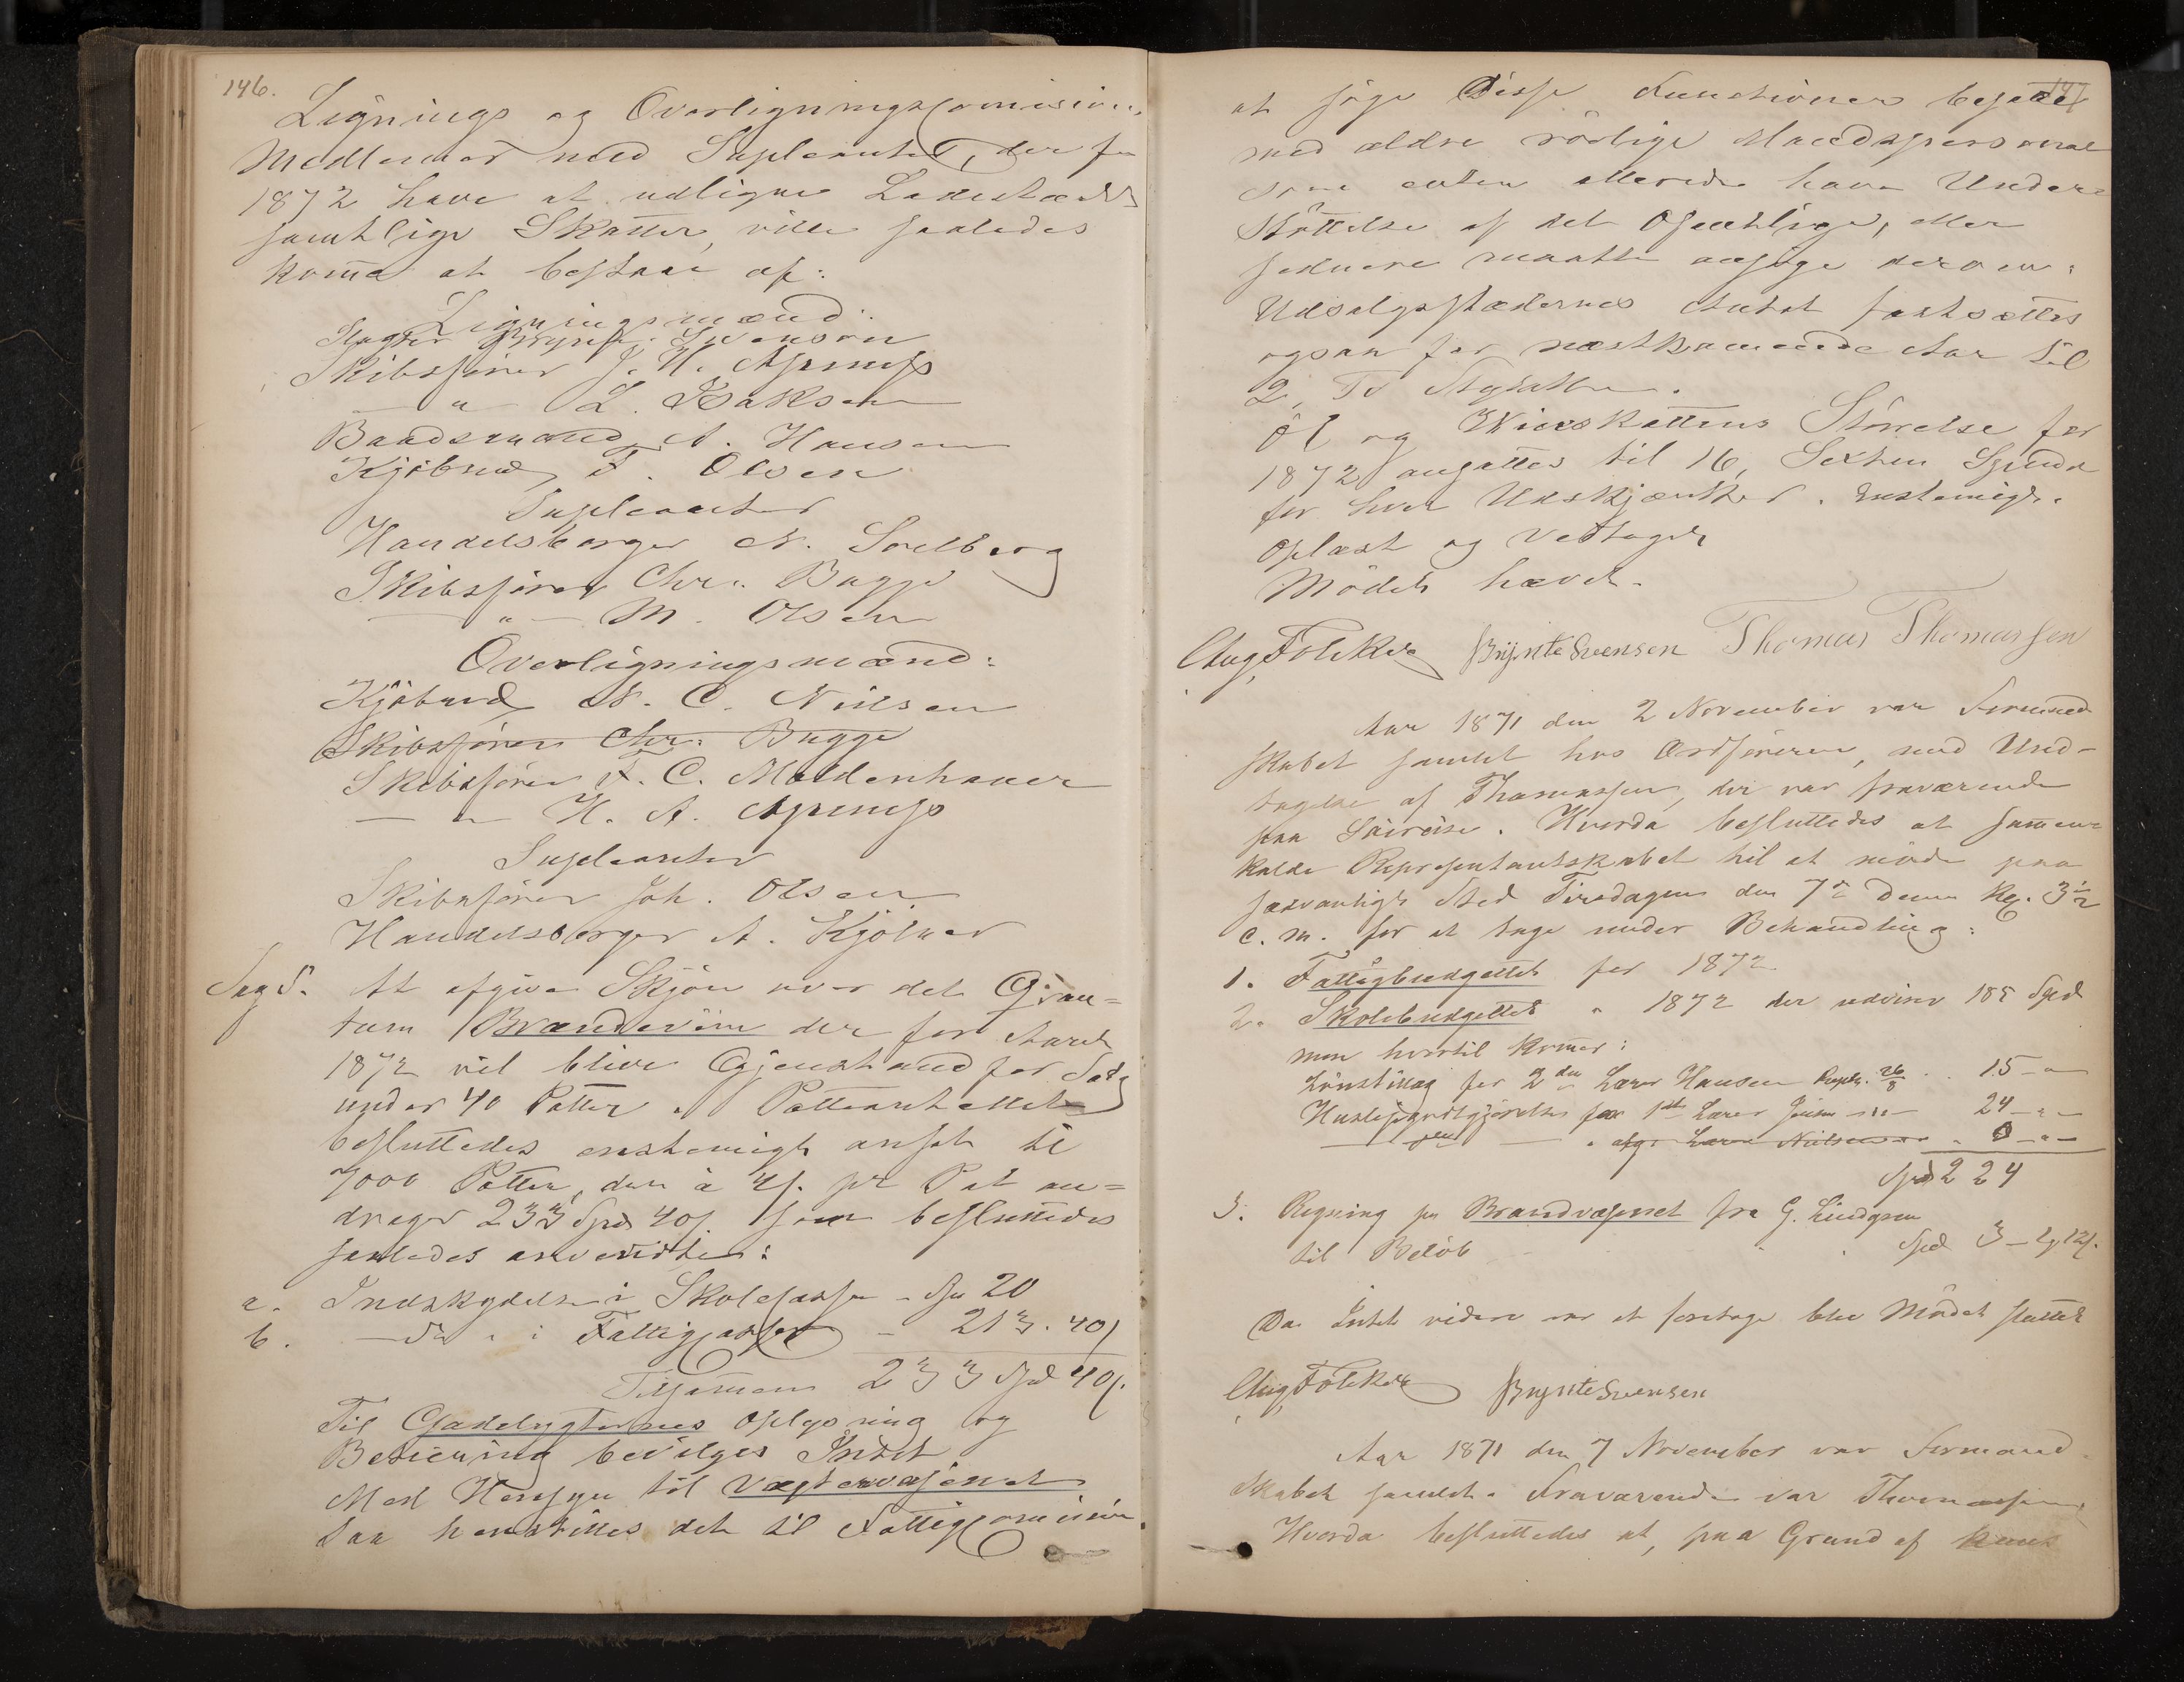 146.
Lignings og Overligningscomisions
Medlemer med Supleanter, der for
1872 have at udligne Ladestedets
samtlige Skatter, ville saaledes
kome at bestaae af:
Ligningsmænd:
Slagter Brynte Svensen
Skibsfører J. H.
— " — L. Isaksen
Baadsmand A. Hansen
Kjøbmd T. Olsen
Supleanter
Handelsborger N. Soelberg
Skibsfører Chr. Bugge
— " — M. Olsen
Overligningsmænd:
Kjøbmd N. C. Nielsen
Skibsfører Chr. Bugge
Skibsfører F. C. Moldenhauer
— " — H. A.
Supleanter
Skibsfører Joh. Olsen
Handelsborger A. Kjølner
Sag 5. At afgive Skjøn over det Qvan=
tum Brændeviin der for Aaret
1872 vil blive Gjenstand for Salg
under 40 Potter. Potteantallet
besluttedes enstemigt ansat til
7000 Potter, der à 4 s. pr Pot an=
drager 233 Spd 40 s. som besluttedes
saaledes anvendte:
a. Indskydelse i Skolecassen - Spd 20
b. — do " i Fattigcassen — 213. 40 s
Tilsamen 233 Spd 40 s.
Til Gadelygternes Oplysning og
Betiening bevilges Intet
Med Hensyn til Vægtervæsenet
saa henstilles det til Fattigcomisionen
147
at søge disse Functioner besatte
med ældre rørlige Mandspersoner
som enten allerede have Under=
støttelse af det Offentlige, eller
sednere maatte ansøge derom.
Udsalgsstædernes Antal fastsættes
ogsaa for næstkommende Aar til
2, To Stykker.
Øl og Viinskattens Størrelse for
1872 ansattes til 16, Sexten Spd
for hver Udskjænker. Enstemigt.
Oplæst og Vedtaget
Mødet hævet.
Aug. Følcker Brynte Svensen Thomas Thomassen
Aar 1871 den 2 November var Formand
skabet samlet hos Ordføreren, med Und-
tagelse af Thomassen, der var fraværende
paa Søreise. Hvorda besluttedes at samen
kalde Representantskabet til at møde paa
sædvanligt Sted Tirsdagen den 7de Denne Kl. 3½
E. M. for at tage under Behandling:
1. Fattigbudgettet for 1872
2. Skolebudgettet " 1872 der udviser 185 Spd
men hvortil komer:
Lønstillæg for 2den Lærer Hansen Reqple. 26/8 .. 15 - "
Huuslejegodtgjørelse for 1ste Lærer Jensen — " — 24 - " -
afg. Lærer Nielsen " 0 - " -
Spd 224
3. Regning for Brandvæsenet fra G. Lindgren
til Beløb Spd 3 - 2 - 12 s.
Da Intet videre var at foretage blev Mødet sluttet
Aug. Følcker Brynte Svensen
Aar 1871 den 7 November var Formand
skabet samlet. Fraværende var Thomassen
Hvorda besluttedes at, paa Grund af